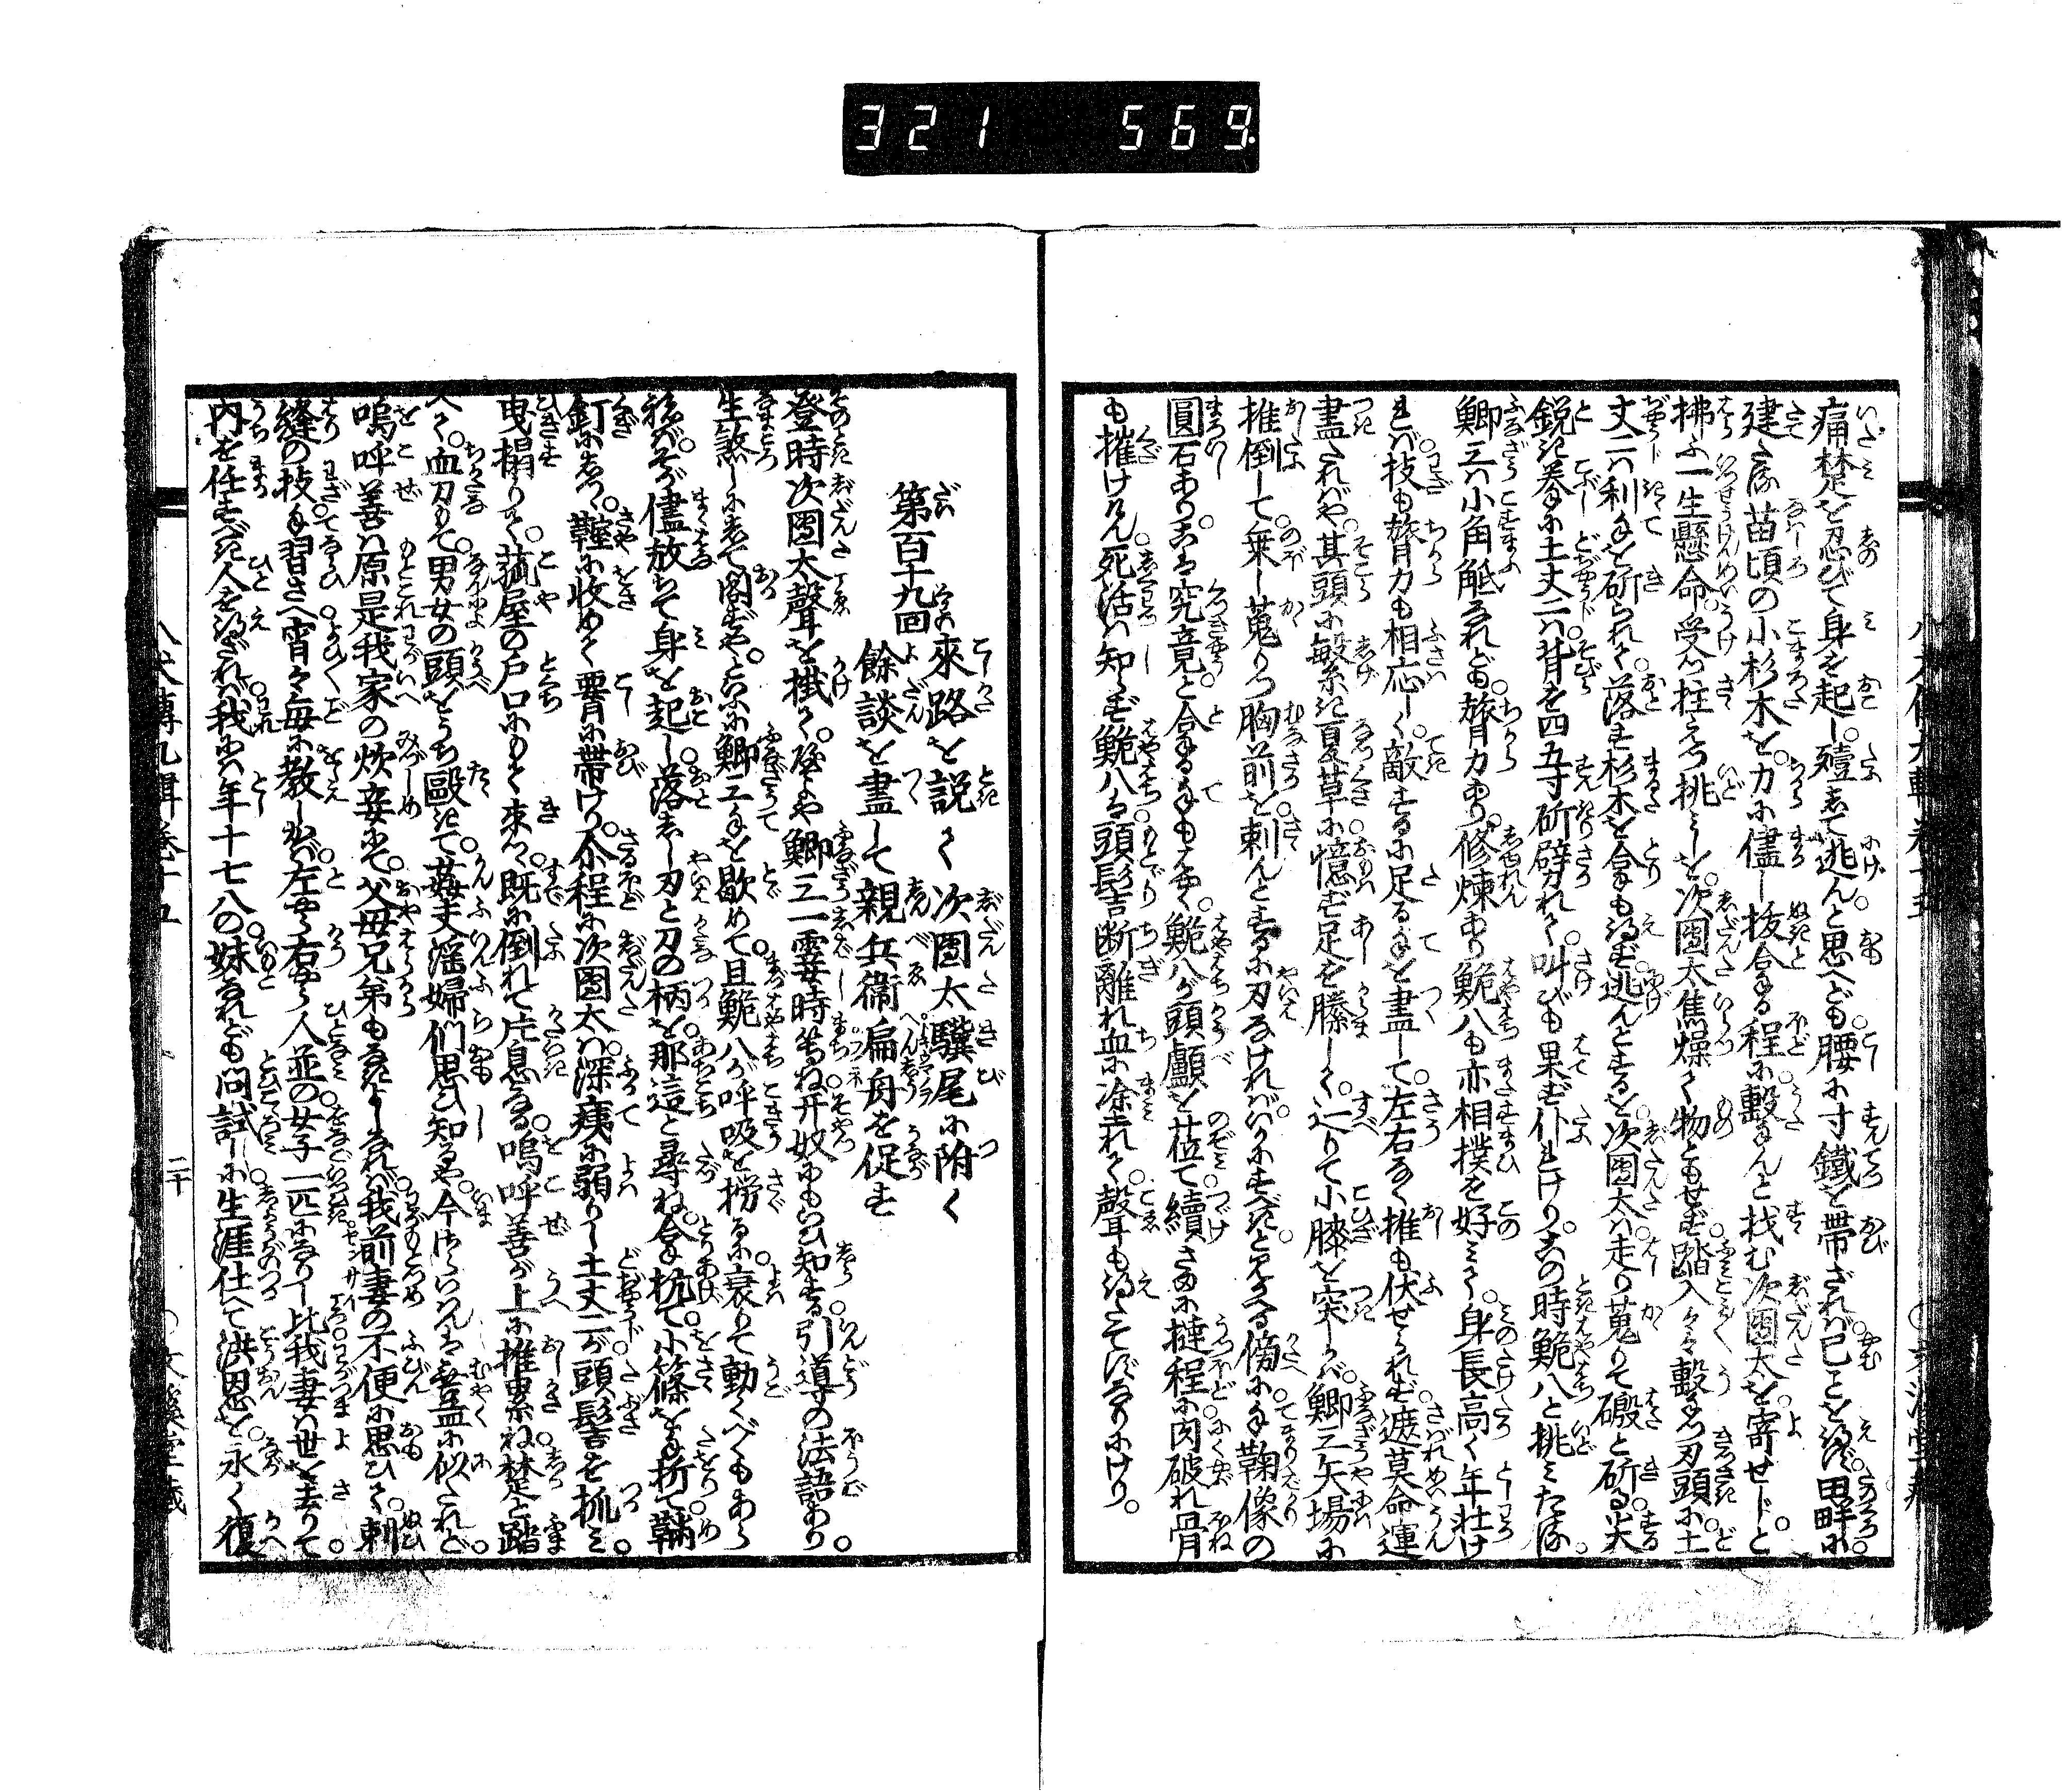 321 569
痛楚を忍びて身を起し殪まて逃んと思へども。腰に寸鐵を帶ざれば已ことを得ず。田畔に
建たる苗頃の小杉木を。力に儘し拔合する程に。擊んと找む次團太を。寄せじと
拂ふ一生懸命。受つ拄えつ挑みしを。次團太焦燥て物ともせず。踏入々々擊つ刃頭に土
丈二は利手を斫られて。落す杉木を合りも得ず。逃んとするを次團太は。走り蒐りて礑と斫る。尖
銳き拳に土丈二は。背を四五寸斫劈れて。叫びも果ず仆れけり。この時鮠八と挑みたる。
鯽三は小角觝なれども。膂力あり修煉あり。鮠八も亦相撲を好みて。身長高く年壯け
れば。技も膂力も相応しく。敵するに足る手を盡して。左右なく推も伏せられず。遮莫命運
盡たればや。其頭に繁き夏草に。憶ず足を滕して。辷りて小膝を突しかば。鯽三矢場に
推倒して。乘し蒐りつ胸前を。刺んとするに刃なければ。いかにすべきと見かへる傍に。手鞠像の
圓石あり。こは究竟と合る手もはやく。鮠八が頭顱を莅て。續さまに撻程に。肉破れ骨
も摧けけん。死活は知らず鮠八は。頭髻斷離れ血に塗れて。聲も得たてずなりにけり。
第百十九回
來路を説て次團太驥尾に附く
餘談を盡して親兵衞扁舟を促す
登時次團太聲を掛て。噫や鯽三一霎時等ね。奴にもいひ知する。引導の法語あり。
生煞しにして閣ずや。といふに鯽三手を歇めて。且鮠八が呼吸を撈るに。衰りて動くべくもあら
ねば。そが儘放ちて身を起し。落せし刃と刀の柄を。那這と尋ね合抗て。小篠を折て鞆
釘にしつ。鞘に收めて腰に帶けり。介程に次團太は。深痍に弱りし土丈二が。頭髻を抓み。
曳摺りて。菰屋の戶口にもて來つ。既に倒れて片息なる。嗚呼善が上に推累ね。楚と踏
へて。血刀もて。男女の頭をうち毆きて。姦夫滛婦們思ひ知るや。今はいはんは無益に似たれど。
嗚呼善は原是我家の炊妾にて。父母兄弟もなきよしなれば。我前妻の不便に思ひて。刺
縫の技を習さへ。宵々每に教しかば。左やら右やら人並の。女子一匹になりし比。我妻は世を去りて。
內を任すべき人を得ざれば。我には年十七八の妹なれども。問試しに生涯仕へて。洪恩を永く復